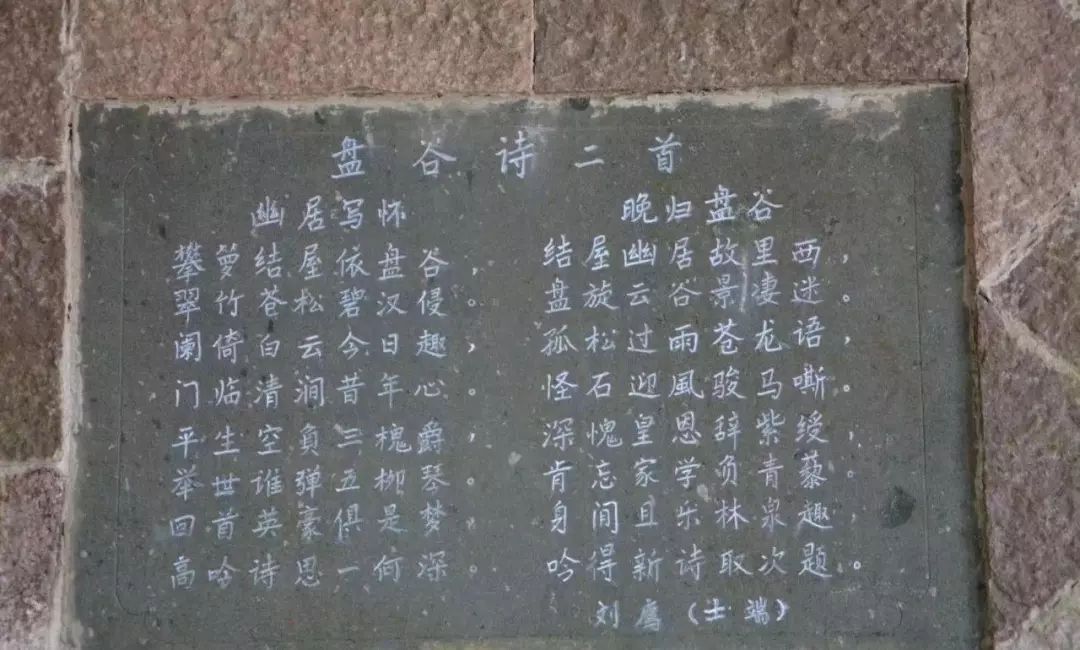 盘谷诗二首
幽居写怀
攀萝结屋依盘谷，
翠竹苍松碧汉侵。
阑倚白云今日趣，
门临清涧昔年心。
平生空負三槐爵，
举世谁弹五柳琴。
回首英豪俱是梦，
高吟诗思一何深。
晚归盘谷
结屋幽居故里西，
盘旋云谷景凄迷。
孤松过雨苍龙语，
怪石迎風骏马嘶。
深愧皇恩辞紫绶，
肯忘家学负青藜。
身闲且乐林泉趣，
吟得新诗取次题。
刘廌（士端）